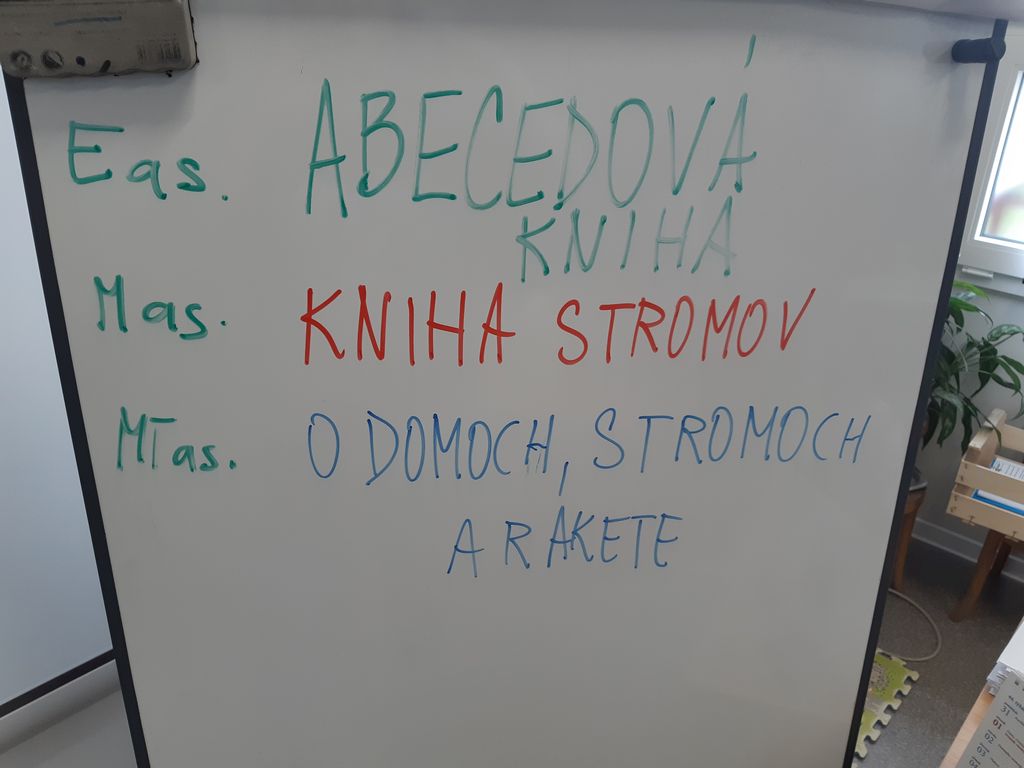 Eas. ABECEDOVÁ
KNIHA
Mas. KNIHA STROMOV
MTas. O DOMOCH, STROMOCH
A RAKETE